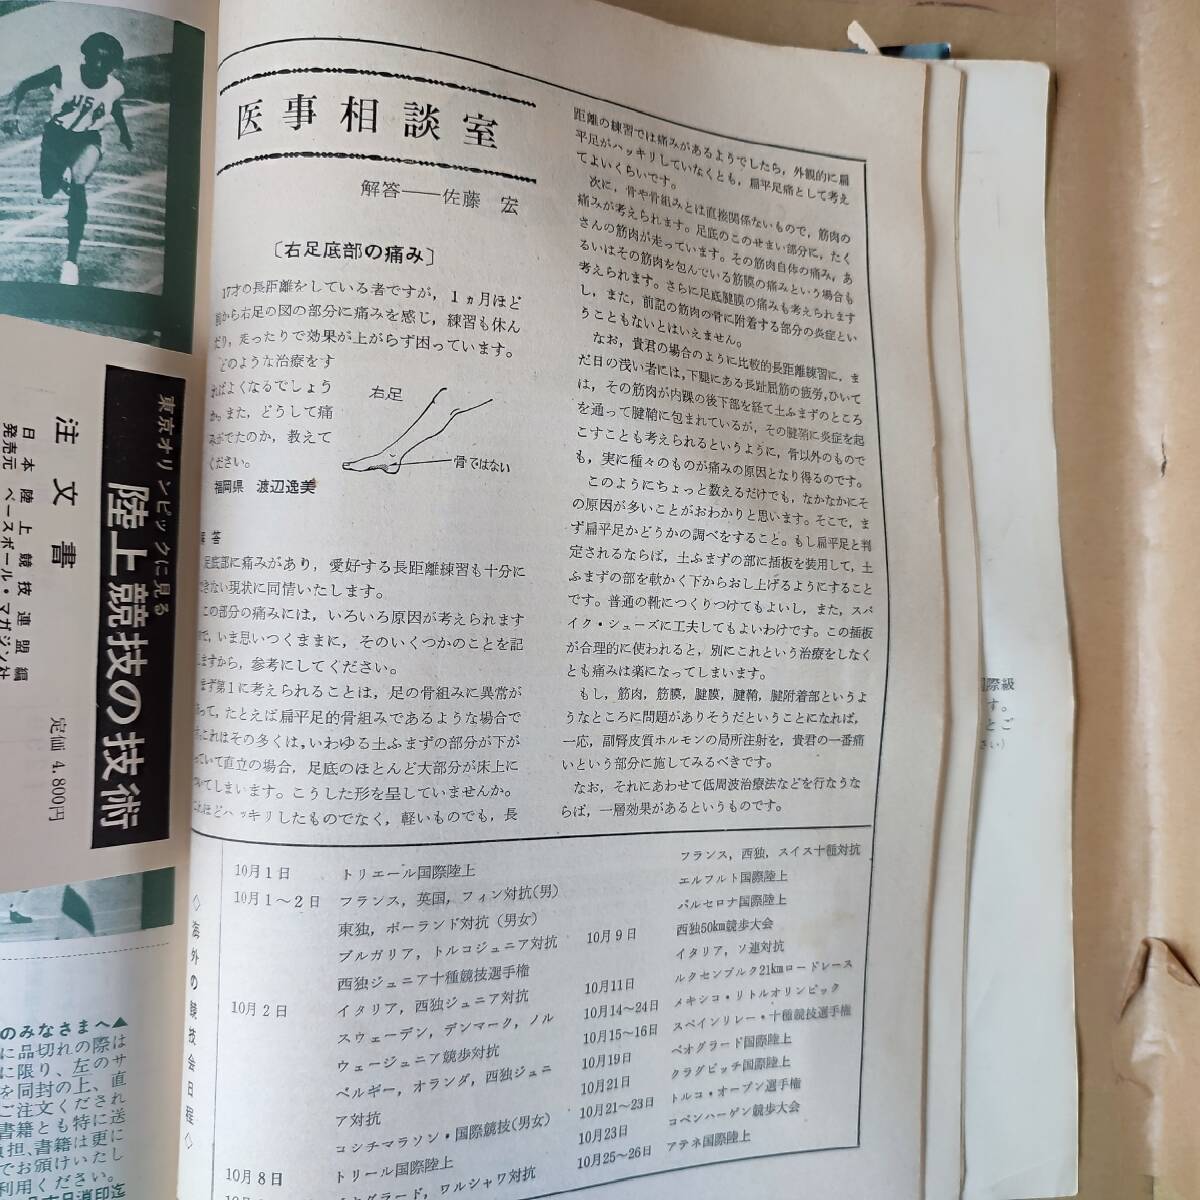 医事相談室
解答――佐藤　宏
〔右足底部の痛み〕
17才の長距離をしている者ですが，1ヵ月ほど
前から右足の図の部分に痛みを感じ，練習も休ん
だり，走ったりで効果が上がらず困っています。
どのような治療をす
ればよくなるでしょう
か。また，どうして痛
みがでたのか，教えて
ください。
福岡県　渡辺逸美
右足
骨ではない
解答
足底部に痛みがあり，愛好する長距離練習も十分に
できない現状に同情いたします。
この部分の痛みには，いろいろ原因が考えられます
ので，いま思いつくままに，そのいくつかのことを記
しますから，参考にしてください。
まず第1に考えられることは，足の骨組みに異常が
あって，たとえば扁平足的骨組みであるような場合で
す。これはその多くは，いわゆる土ふまずの部分が下が
っていて直立の場合，足底のほとんど大部分が床上に
ついてしまいます。こうした形を呈していませんか。
これほどハッキリしたものでなく，軽いものでも，長
距離の練習では痛みがあるようでしたら，外観的に扁
平足がハッキリしていなくとも，扁平足痛として考え
てよいくらいです。
次に，骨や骨組みとは直接関係ないもので，筋肉の
痛みが考えられます。足底のこのせまい部分に，たく
さんの筋肉が走っています。その筋肉自体の痛み，あ
るいはその筋肉を包んでいる筋膜の痛みという場合も
考えられます。さらに足底腱膜の痛みも考えられます
し，また，前記の筋肉の骨に附着する部分の炎症とい
うこともないとはいえません。
なお，貴君の場合のように比較的長距離練習に，ま
だ日の浅い者には，下腿にある長趾屈筋の疲労，ひいて
は，その筋肉が内踝の後下部を経て土ふまずのところ
を通って腱鞘に包まれているが，その腱鞘に炎症を起
こすことも考えられるというように，骨以外のもので
も，実に種々のものが痛みの原因となり得るのです。
このようにちょっと数えるだけでも，なかなかにそ
の原因が多いことがおわかりと思います。そこで，ま
ず扁平足かどうかの調べをすること。もし扁平足と判
定されるならば，土ふまずの部に挿板を装用して，土
ふまずの部を軟かく下からおし上げるようにすること
です。普通の靴につくりつけてもよいし，また，スパ
イク・シューズに工夫してもよいわけです。この挿板
が合理的に使われると，別にこれという治療をしなく
とも痛みは楽になってしまいます。
もし，筋肉，筋膜，腱膜，腱鞘，腱附着部というよ
うなところに問題がありそうだということになれば，
一応，副腎皮質ホルモンの局所注射を，貴君の一番痛
いという部分に施してみるべきです。
なお，それにあわせて低周波治療法などを行なうな
らば，一層効果があるというものです。
◇海外の競技会日程◇
10月1日　トリエール国際陸上
10月1～2日　フランス，英国，フィン対抗(男)
東独，ポーランド対抗（男女）
ブルガリア，トルコジュニア対抗
西独ジュニア十種競技選手権
10月2日　イタリア，西独ジュニア対抗
スウェーデン，デンマーク，ノル
ウェージュニア競歩対抗
ベルギー，オランダ，西独ジュニ
ア対抗
コシチマラソン・国際競技(男女)
10月8日　トリール国際陸上
ワルシャワ対抗
フランス，西独，スイス十種対抗
エルフルト国際陸上
バルセロナ国際陸上
10月9日　西独50km競歩大会
イタリア，ソ連対抗
10月11日　ルクセンブルク21kmロードレース
10月14～24日　メキシコ・リトルオリンピック
10月15～16日　スペインリレー・十種競技選手権
10月19日　ベオグラード国際陸上
10月21日　クラグビッチ国際陸上
10月21～23日　トルコ・オープン選手権
10月23日　コペンハーゲン競歩大会
10月25～26日　アテネ国際陸上
USA
東京オリンピックに見る
陸上競技の技術
注文書
日本陸上競技連盟編
発売元　ベースボール・マガジン社
定価 4,800円
のみなさまへ▲
に品切れの際は
に限り、左のサ
を同封の上、直
ご注文くだされ
書籍とも特に送
負担、書籍は更に
でお願けいたし
利用ください。
際級
す。
とご
さい）